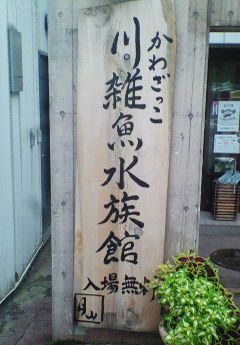 かわざっこ
川雑魚水族館
入場無料
月山